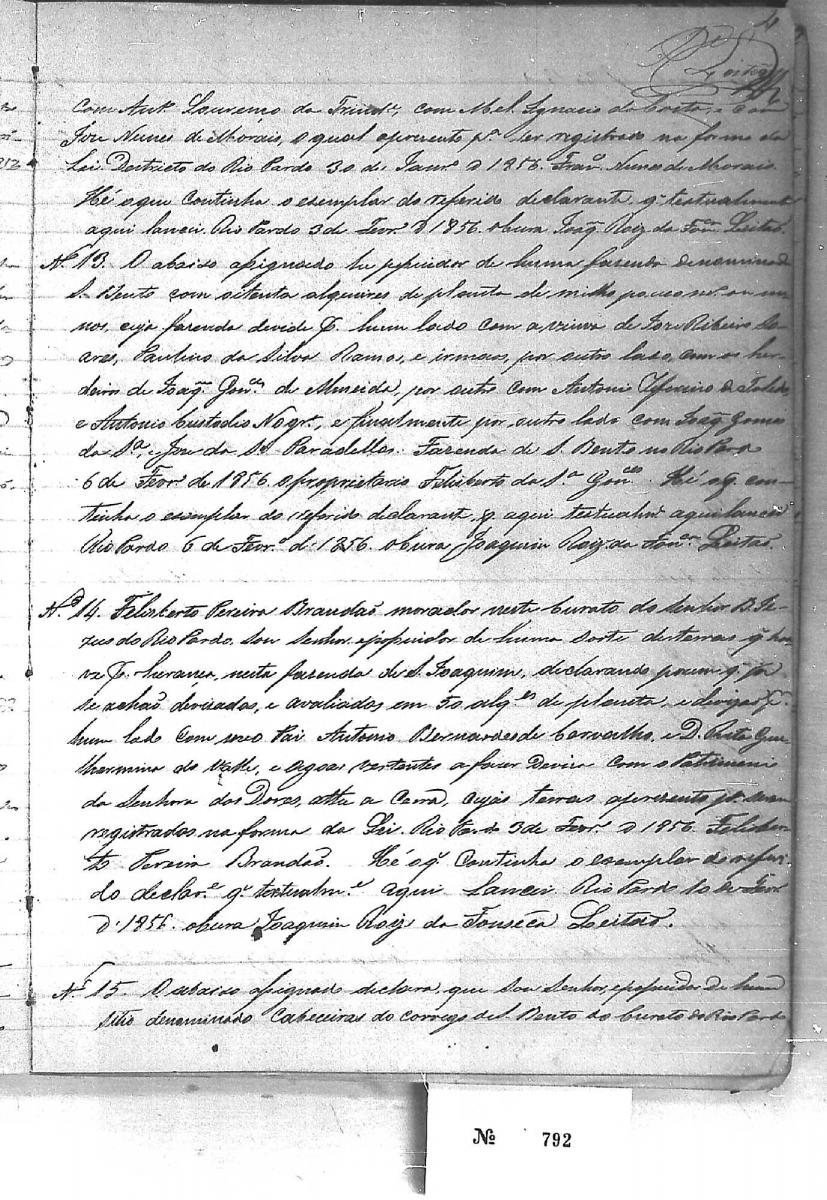 4
Leitão
com Ant.º Lourenço da Trind.e, com M.el Ignacio da Costa, e com
Joze Nunes de Morais, o qual apresento p.ª ser registrado na forma da
Lei. Destricto do Rio Pardo 30 de Janr.º d 1856. Fran.co Nunes de Morais.
Hé o que continha o esemplar do referido declarant. q. textualment
aqui lancei. Rio Pardo 3 de Fevr.º d 1856. o Cura Joaq.m Roiz da Fon.ca Leitão.
N.º 13. O abaixo assignado he possuidor de huma fazenda denominada
S. Bento com setenta alqueires de planta de milho pouco m.s ou me-
nos, cuja fazenda devide p. hum lado com a viuva de Joze Ribeiro So-
ares, Paulino da Silva Ramos, e irmaos, por outro lado, com os her-
deiros de Joaq.m Gon.es de Almeida, por outro com Antonio de Toledo
e Antonio Custodio Nogr.ª, e finalmente por outro lado com Joaq.m Gomes
da S.ª, e Joze da S.ª Paradellas. Fazenda de S. Bento no Rio Pardo
6 de Fevr.º de 1856. o proprietario Felisberto da S.ª Gon.ces. Hé o q. con-
tinha o esemplar do referido declarant. q. aqui textualm.e aqui lancei
Rio Pardo 6 de Fevr.º d. 1856. o Cura Joaquim Roiz da Fon.ca Leitão.
N.º 14. Felisberto Pereira Brandão morador neste Curato do Senhor B. Je-
zus do Rio Pardo. Sou Senhor, e possuidor de huma sorte de terras q. hou-
ve p. herança, nesta fazenda de S. Joaquim, declarando porem q. já
se achão devisadas, e avaliadas em 50 alq.es de planta, e p.r
hum lado com seo Pai Antonio Bernardes de Carvalho, e D. Rita Gui-
lhermina do Valle, e agoas vertentes a fazer deviza com o Patrimonio
da Senhora das Dores, cujas terras apresento p.ª serem
registradas na forma da Lei. Rio Pardo 3 de Fevr.º d 1856. Felisber-
to Pereira Brandão. Hé o q. continha o esemplar do referi-
do declar.e q. textualm.e aqui lancei. Rio Pardo 10 de Fevr.
d. 1856. o Cura Joaquim Roiz da Fonseca Leitão.
N.º 15. O abaixo assignado declara, que sou Senhor, e possuidor de hum
sitio denominado Cabeceiras do corrego de S. Bento do Curato do Rio Pardo
Nº 792